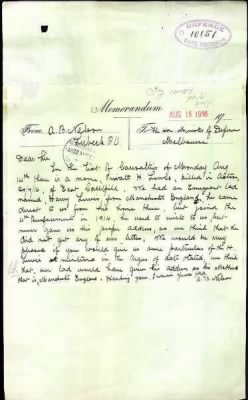 DEFENCE
10151
Memorandum
AUG 15 1916
From A. B. Nelson
To the Hon Minister of Defence
P.O.
Melbourne
Dear Sir
In the list of Casualties of Monday Aug
14th there is a name, Private H Lewis, killed in Action
of East Caulfield. We had an Emigrant lad
named Harry Lewis, from Manchester England, he came
direct to us from his home there, but joined the
Reinforcements in 1914, he used to write to us but
never gave us his proper address, so we think that he
did not get any of our letters. We would be very
pleased if you would give us some particulars of the H.
Lewis as mentioned in the Argus of date stated, we think
that our lad would have given his address as his Mothers
that is Manchester England. Hearing from you. I remain yours
A. B. Nelson